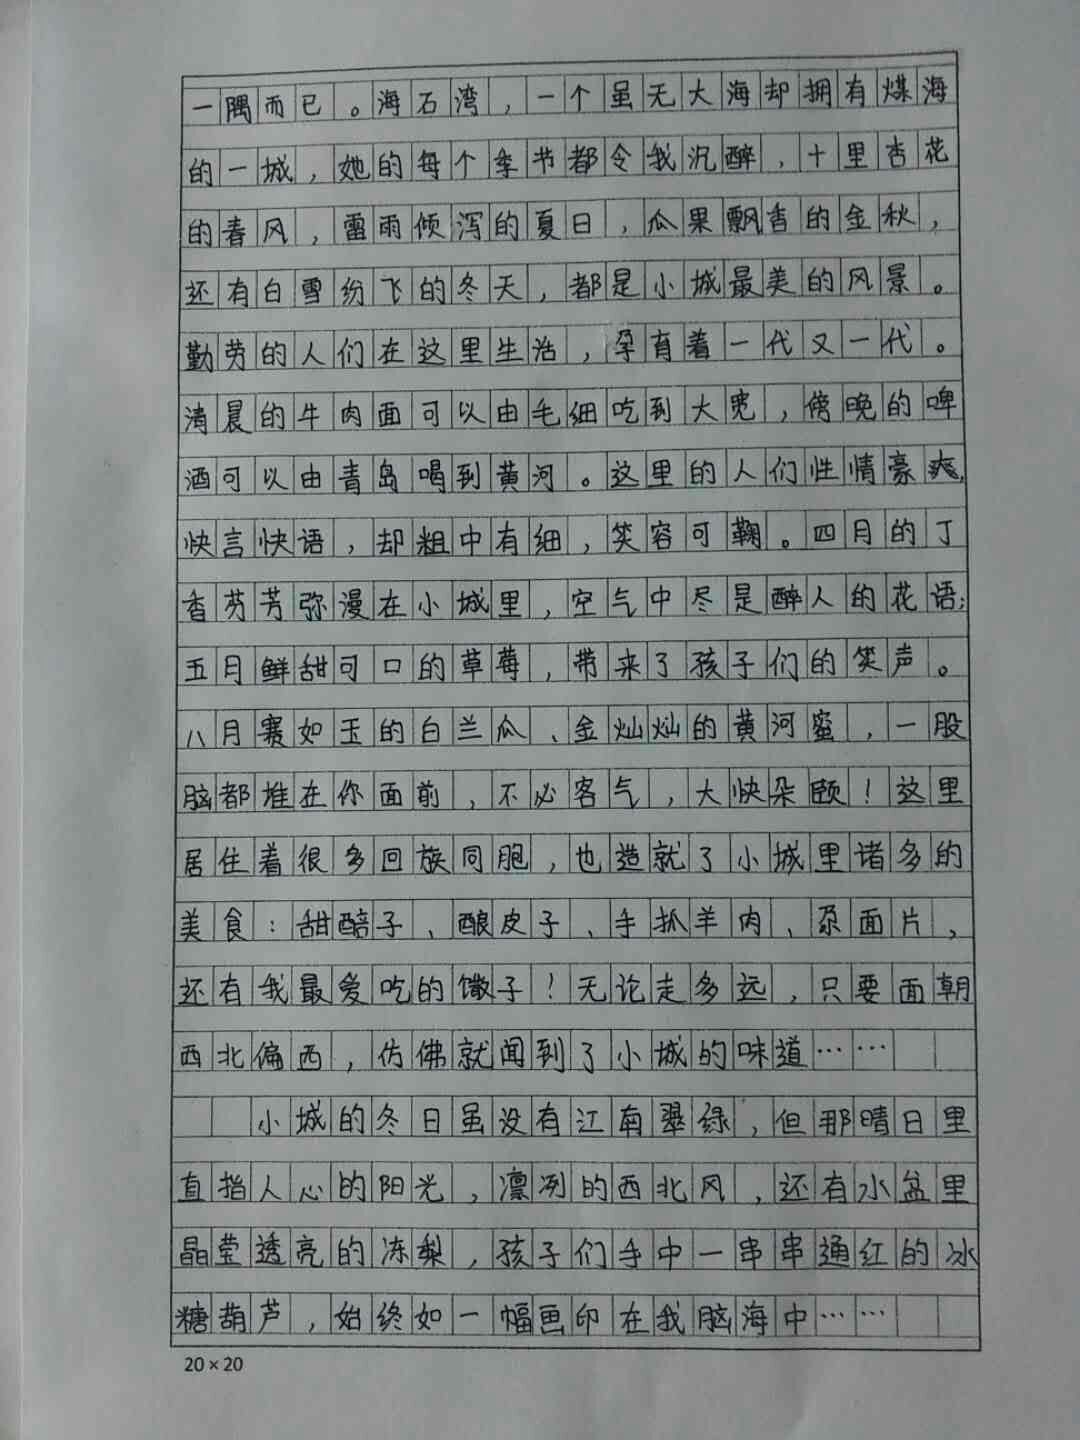 一隅而已。海石湾，一个虽无大海却拥有煤海
的一城，她的每个季节都令我沉醉，十里杏花
的春风，雷雨倾泻的夏日，瓜果飘香的金秋，
还有白雪纷飞的冬天，都是小城最美的风景。
勤劳的人们在这里生活，孕育着一代又一代。
清晨的牛肉面可以由毛细吃到大宽，傍晚的啤
酒可以由青岛喝到黄河。这里的人们性情豪爽，
快言快语，却粗中有细，笑容可鞠。四月的丁
香芬芳弥漫在小城里，空气中尽是醉人的花语；
五月鲜甜可口的草莓，带来了孩子们的笑声。
八月赛如玉的白兰瓜、金灿灿的黄河蜜，一股
脑都堆在你面前，不必客气，大快朵颐！这里
居住着很多回族同胞，也造就了小城里诸多的
美食：甜醅子、酿皮子、手抓羊肉、尕面片，
还有我最爱吃的馓子！无论走多远，只要面朝
西北偏西，仿佛就闻到了小城的味道……
小城的冬日虽没有江南翠绿，但那晴日里
直指人心的阳光，凛冽的西北风，还有水盆里
晶莹透亮的冻梨，孩子们手中一串串通红的冰
糖葫芦，始终如一幅画印在我脑海中……
20×20